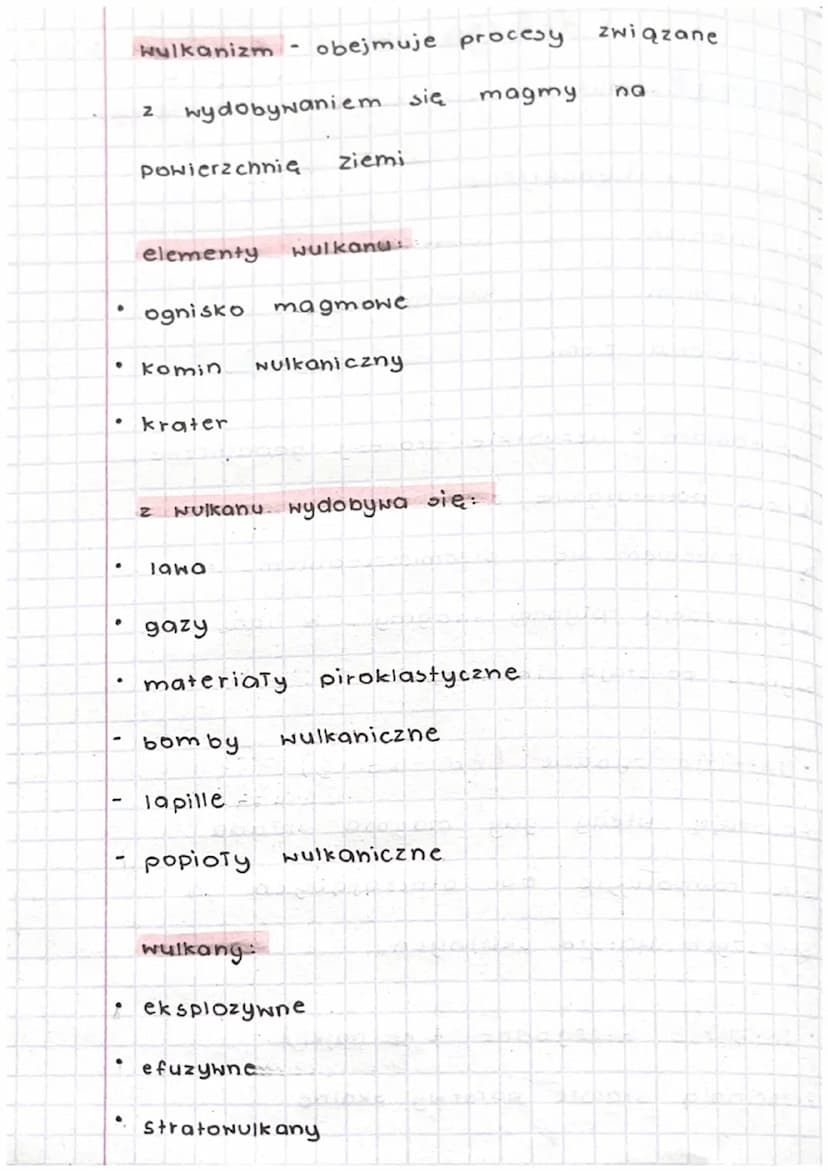 wulkanizm - obejmuje procesy związane
z wydobywaniem się magmy na
powierzchnię ziemi
elementy wulkanu:
• ognisko magmowe
• komin wulkaniczny
• krater
z wulkanu wydobywa się:
• lawa
• gazy
• materiały piroklastyczne
- bomby wulkaniczne
- lapille
- popioły wulkaniczne
wulkany:
• eksplozywne
• efuzywne
• stratowulkany